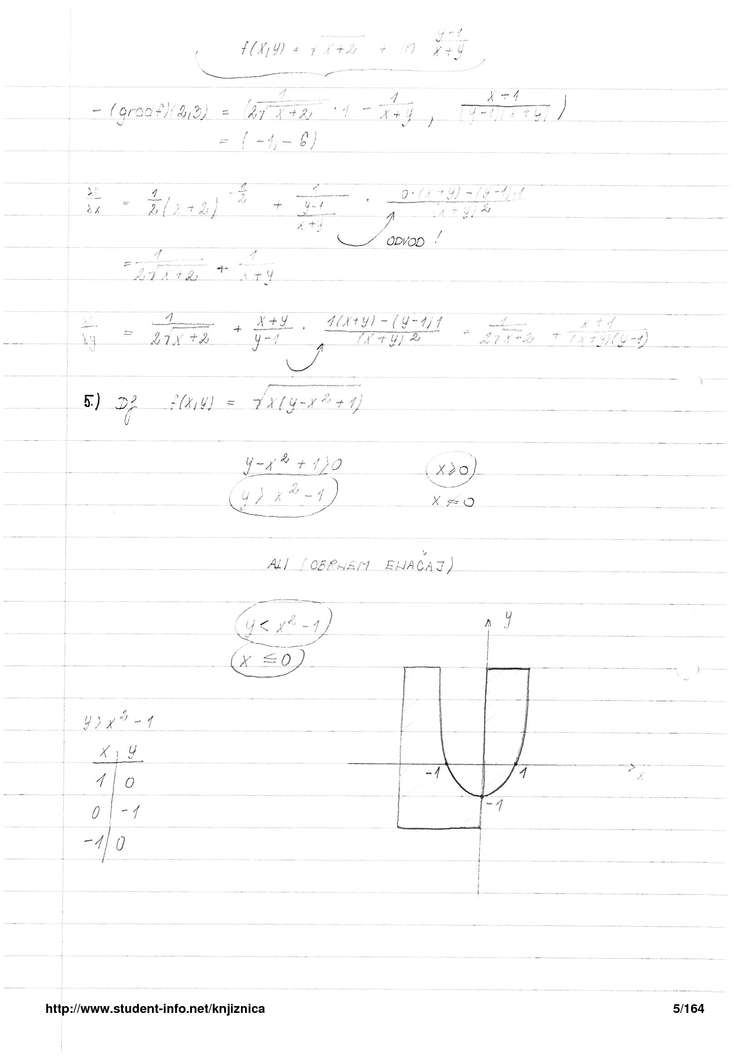 f(x,y) = √x+2 + ln y-1/x+y
- (gradf)(2,3) = (1/2√x+2 · 1 - 1/x+y , x+1/(y-1)(x+y))
= (-1, -6)
= 1/2(x+2)^-1/2 + 1/(y-1/x+y) · 0·(x+y)-(y-1)1/(x+y)²
ODVOD !
= 1/2√x+2 + 1/x+y
= 1/2√x+2 + x+y/y-1 · 1(x+y)-(y-1)1/(x+y)² 1/2√x+2 + x+1/(x+y)(y-1)
5.) Df f(x,y) = √x(y-x²+1)
y-x²+1≥0 x≥0
y ≥ x²-1 x ≠ 0
ALI (OBRNEM ENAČAJ)
y < x²-1
x ≤ 0
y
y ≥ x²-1
x y
1 0
0 -1
-1 0
-1 1 x
-1
http://www.student-info.net/knjiznica 5/164